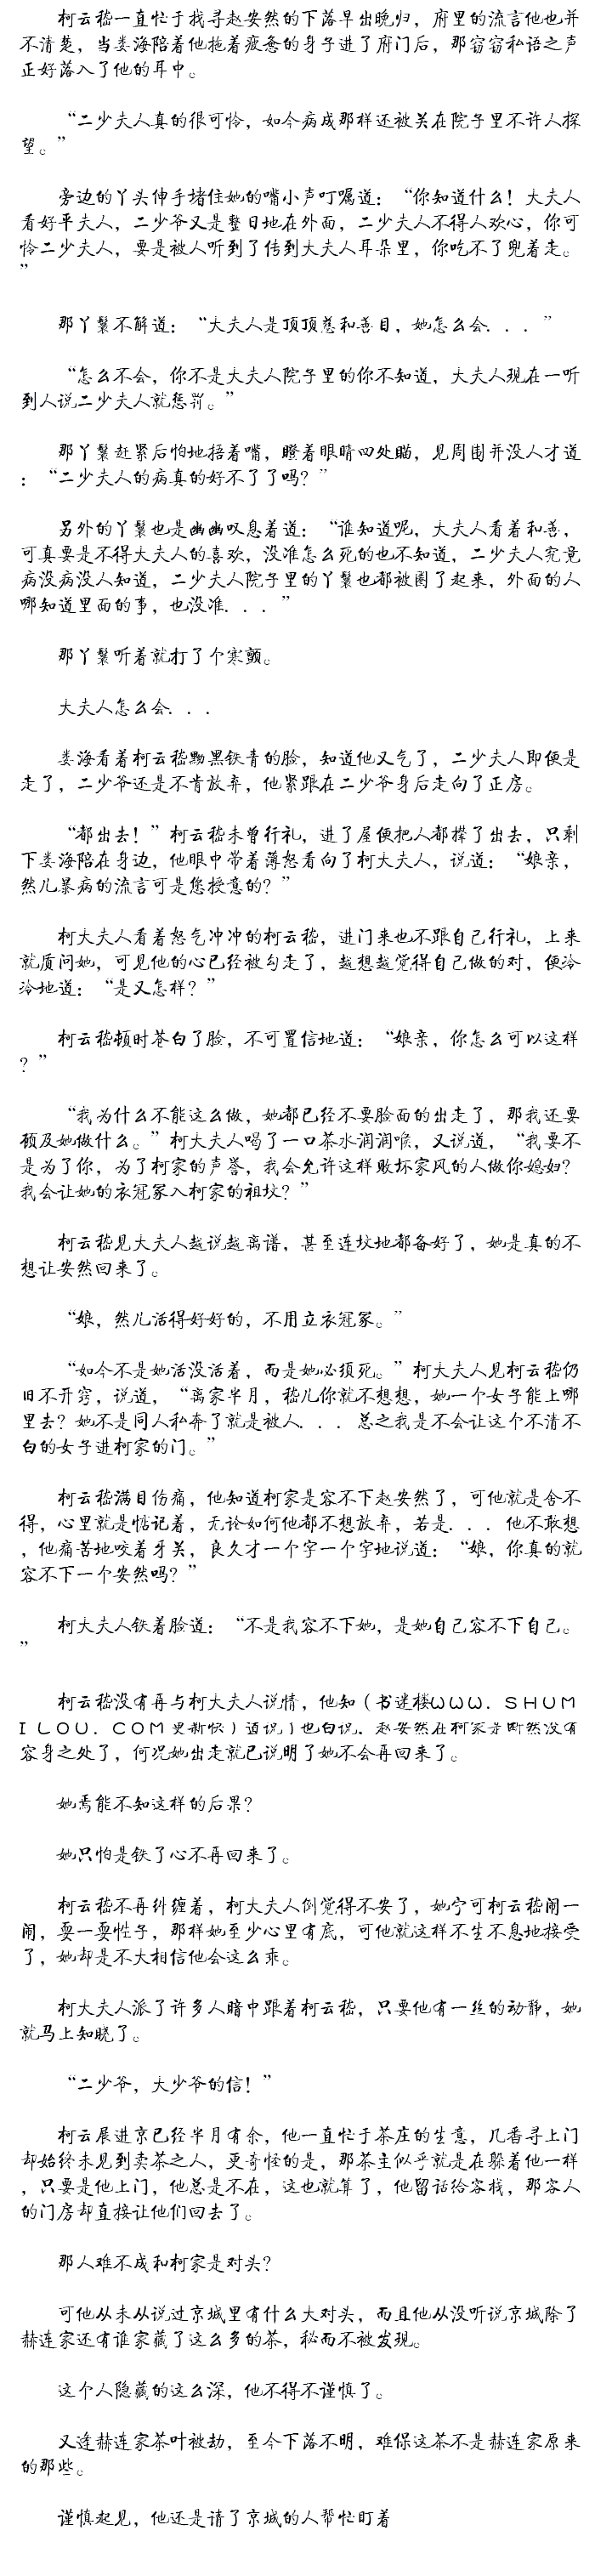 柯云嵇一直忙于找寻赵安然的下落早出晚归，府里的流言他也并
不清楚，当娄海陪着他拖着疲惫的身子进了府门后，那窃窃私语之声
正好落入了他的耳中。
“二少夫人真的很可怜，如今病成那样还被关在院子里不许人探
望。”
旁边的丫头伸手堵住她的嘴小声叮嘱道：“你知道什么！大夫人
看好平夫人，二少爷又是整日地在外面，二少夫人不得人欢心，你可
怜二少夫人，要是被人听到了传到大夫人耳朵里，你吃不了兜着走。
”
那丫鬟不解道：“大夫人是顶顶慈和善目，她怎么会．．．”
“怎么不会，你不是大夫人院子里的你不知道，大夫人现在一听
到人说二少夫人就惩罚。”
那丫鬟赶紧后怕地捂着嘴，瞪着眼睛四处瞄，见周围并没人才道
：“二少夫人的病真的好不了了吗？”
另外的丫鬟也是幽幽叹息着道：“谁知道呢，大夫人看着和善，
可真要是不得大夫人的喜欢，没准怎么死的也不知道，二少夫人究竟
病没病没人知道，二少夫人院子里的丫鬟也都被圈了起来，外面的人
哪知道里面的事，也没准．．．”
那丫鬟听着就打了个寒颤。
大夫人怎么会．．．
娄海看着柯云嵇黝黑铁青的脸，知道他又气了，二少夫人即便是
走了，二少爷还是不肯放弃，他紧跟在二少爷身后走向了正房。
“都出去！”柯云嵇未曾行礼，进了屋便把人都撵了出去，只剩
下娄海陪在身边，他眼中带着薄怒看向了柯大夫人，说道：“娘亲，
然儿暴病的流言可是您授意的？”
柯大夫人看着怒气冲冲的柯云嵇，进门来也不跟自己行礼，上来
就质问她，可见他的心已经被勾走了，越想越觉得自己做的对，便冷
冷地道：“是又怎样？”
柯云嵇顿时苍白了脸，不可置信地道：“娘亲，你怎么可以这样
？”
“我为什么不能这么做，她都已经不要脸面的出走了，那我还要
顾及她做什么。”柯大夫人喝了一口茶水润润喉，又说道，“我要不
是为了你，为了柯家的声誉，我会允许这样败坏家风的人做你媳妇？
我会让她的衣冠冢入柯家的祖坟？”
柯云嵇见大夫人越说越离谱，甚至连坟地都备好了，她是真的不
想让安然回来了。
“娘，然儿活得好好的，不用立衣冠冢。”
“如今不是她活没活着，而是她必须死。”柯大夫人见柯云嵇仍
旧不开窍，说道，“离家半月，嵇儿你就不想想，她一个女子能上哪
里去？她不是同人私奔了就是被人．．．总之我是不会让这个不清不
白的女子进柯家的门。”
柯云嵇满目伤痛，他知道柯家是容不下赵安然了，可他就是舍不
得，心里就是惦记着，无论如何他都不想放弃，若是．．．他不敢想
，他痛苦地咬着牙关，良久才一个字一个字地说道：“娘，你真的就
容不下一个安然吗？”
柯大夫人铁着脸道：“不是我容不下她，是她自己容不下自己。
”
柯云嵇没有再与柯大夫人说情，他知（书迷楼ＷＷＷ．ＳＨＵＭ
ＩＬＯＵ．ＣＯＭ更新快）道说了也白说，赵安然在柯家是断然没有
容身之处了，何况她出走就已说明了她不会再回来了。
她焉能不知这样的后果？
她只怕是铁了心不再回来了。
柯云嵇不再纠缠着，柯大夫人倒觉得不安了，她宁可柯云嵇闹一
闹，耍一耍性子，那样她至少心里有底，可他就这样不生不息地接受
了，她却是不大相信他会这么乖。
柯大夫人派了许多人暗中跟着柯云嵇，只要他有一丝的动静，她
就马上知晓了。
“二少爷，大少爷的信！”
柯云展进京已经半月有余，他一直忙于茶庄的生意，几番寻上门
却始终未见到卖茶之人，更奇怪的是，那茶主似乎就是在躲着他一样
，只要是他上门，他总是不在，这也就算了，他留话给客栈，那客人
的门房却直接让他们回去了。
那人难不成和柯家是对头？
可他从未从说过京城里有什么大对头，而且他从没听说京城除了
赫连家还有谁家藏了这么多的茶，秘而不被发现。
这个人隐藏的这么深，他不得不谨慎了。
又逢赫连家茶叶被劫，至今下落不明，难保这茶不是赫连家原来
的那些。
谨慎起见，他还是请了京城的人帮忙盯着